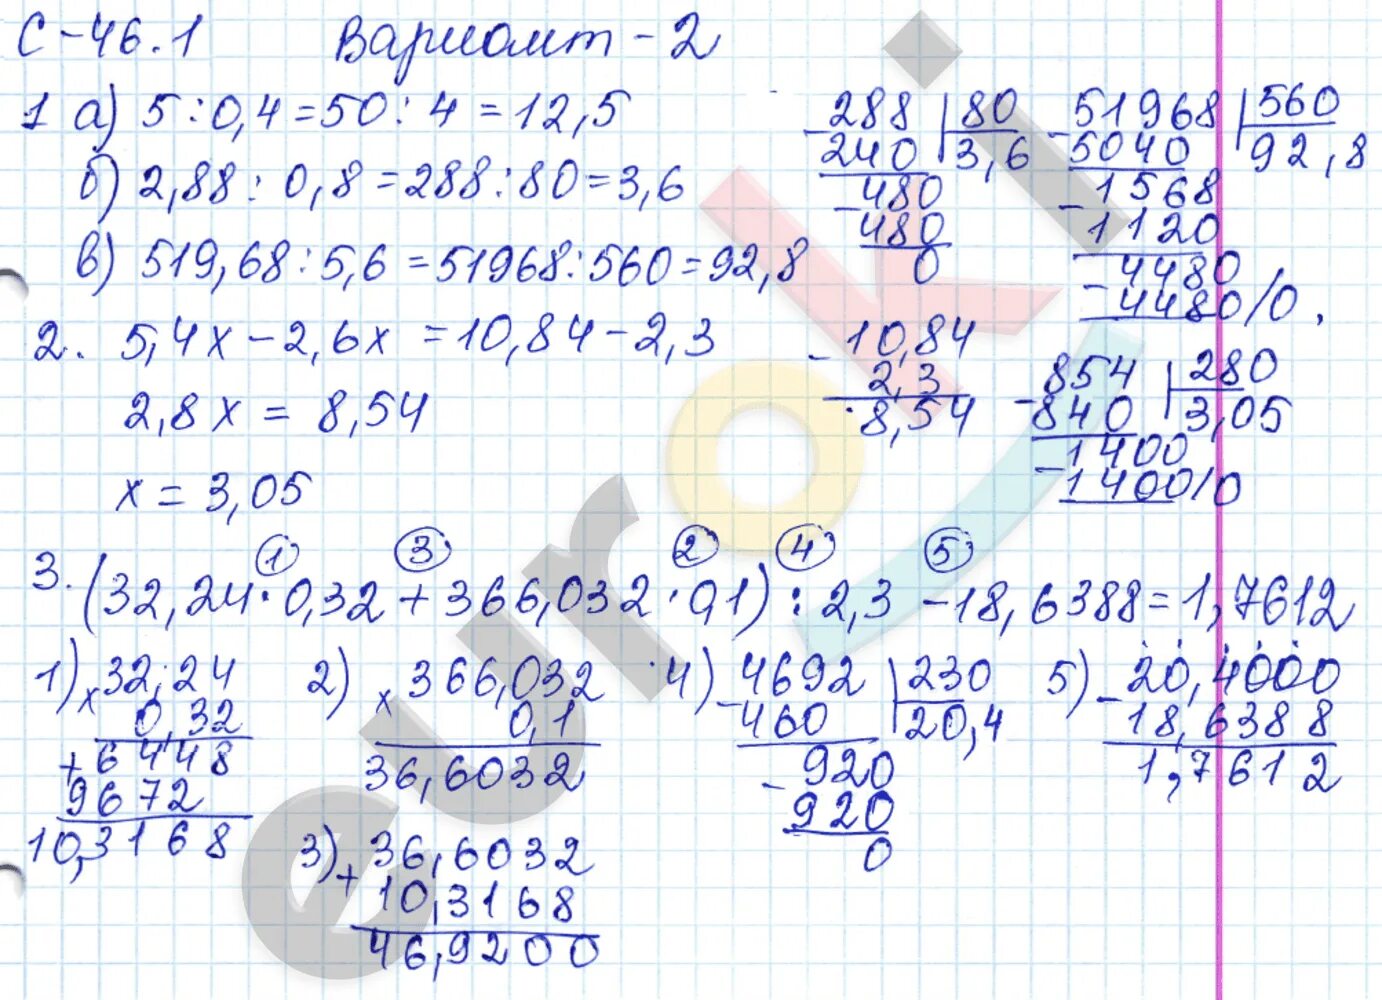 С-46.1 Вариант-2
1 а) 5:0,4=50:4=12,5
б) 2,88:0,8=288:80=3,6
в) 519,68:5,6=51968:560=92,8
-288 80
240 3,6
-480
480
0
-51968 560
5040 92,8
-1568
1120
-4480
4480/0.
2. 5,4x-2,6x=10,84-2,3
2,8x=8,54
x=3,05
-10,84
2,3
8,54
-854 280
840 3,05
-1400
1400/0
① ③ ② ④ ⑤
3. (32,24·0,32+366,032·0,1):2,3-18,6388=1,7612
1) x32,24
0,32
+6448
9672
10,3168
2) x366,032
0,1
36,6032
3) +36,6032
10,3168
46,9200
4) -4692 230
460 20,4
-920
920
0
5) -20,4000
18,6388
1,7612
euroki